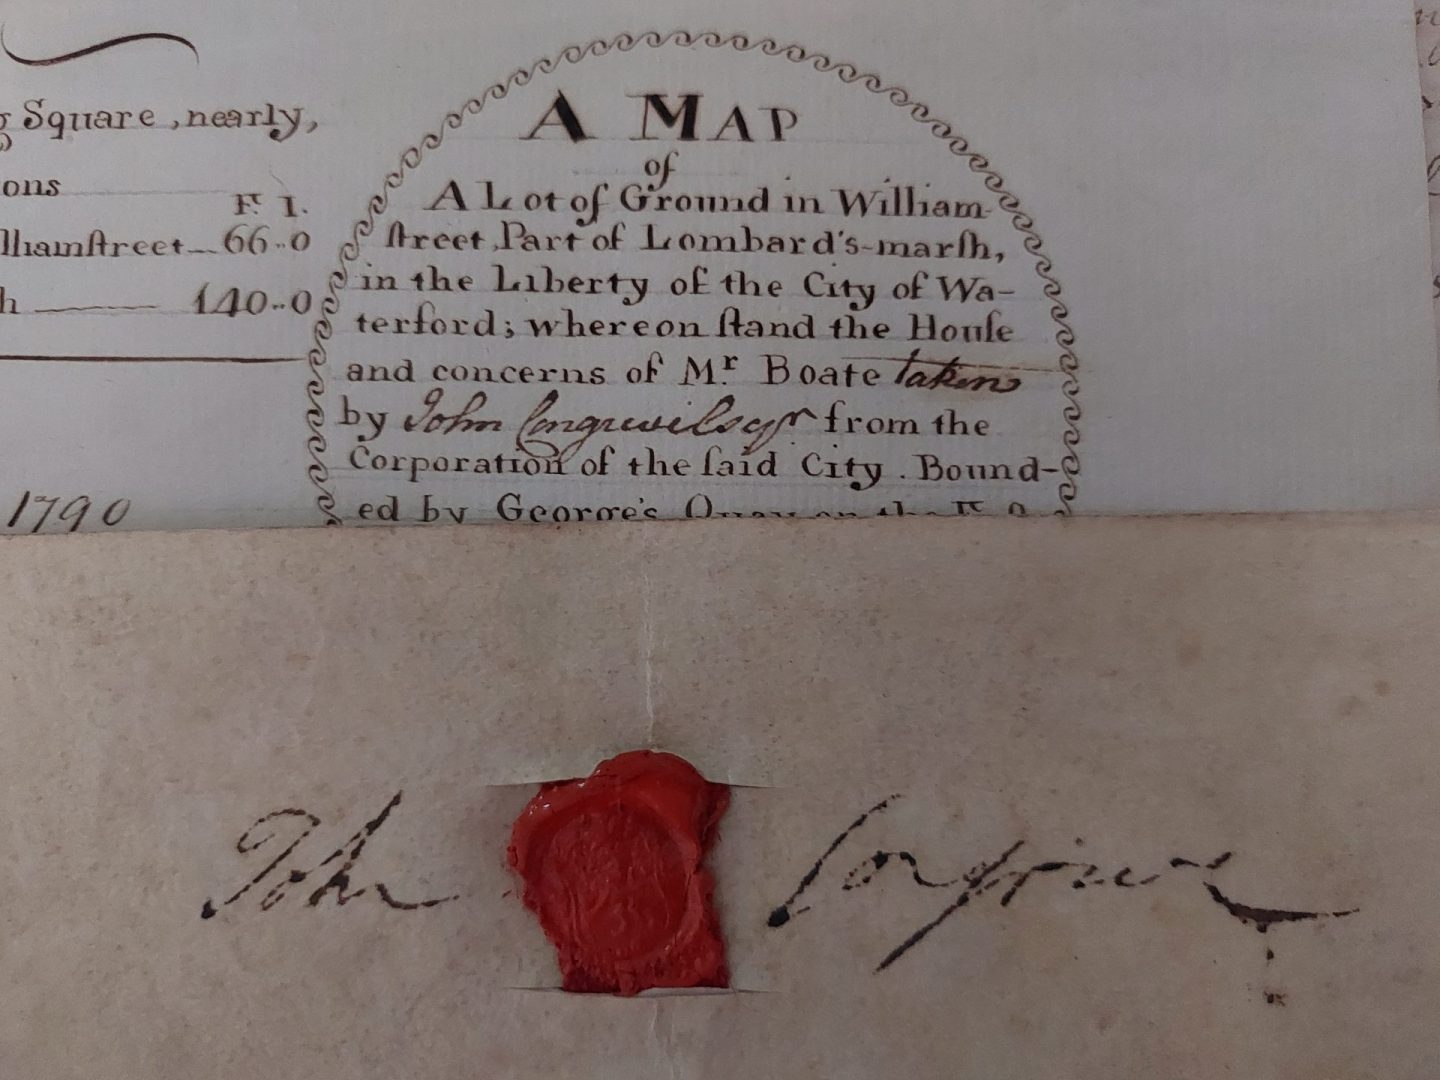 Square, nearly,
ons
F. I.
lliamſtreet 66..0
h 140..0
1790
A MAP
of
A Lot of Ground in William-
ſtreet, Part of Lombard's-marſh,
in the Liberty of the City of Wa-
terford; whereon ſtand the Houſe
and concerns of Mr. Boate taken
by John Congreve Esqr from the
Corporation of the ſaid City. Bound-
ed by George's Quay on the
John Congreve